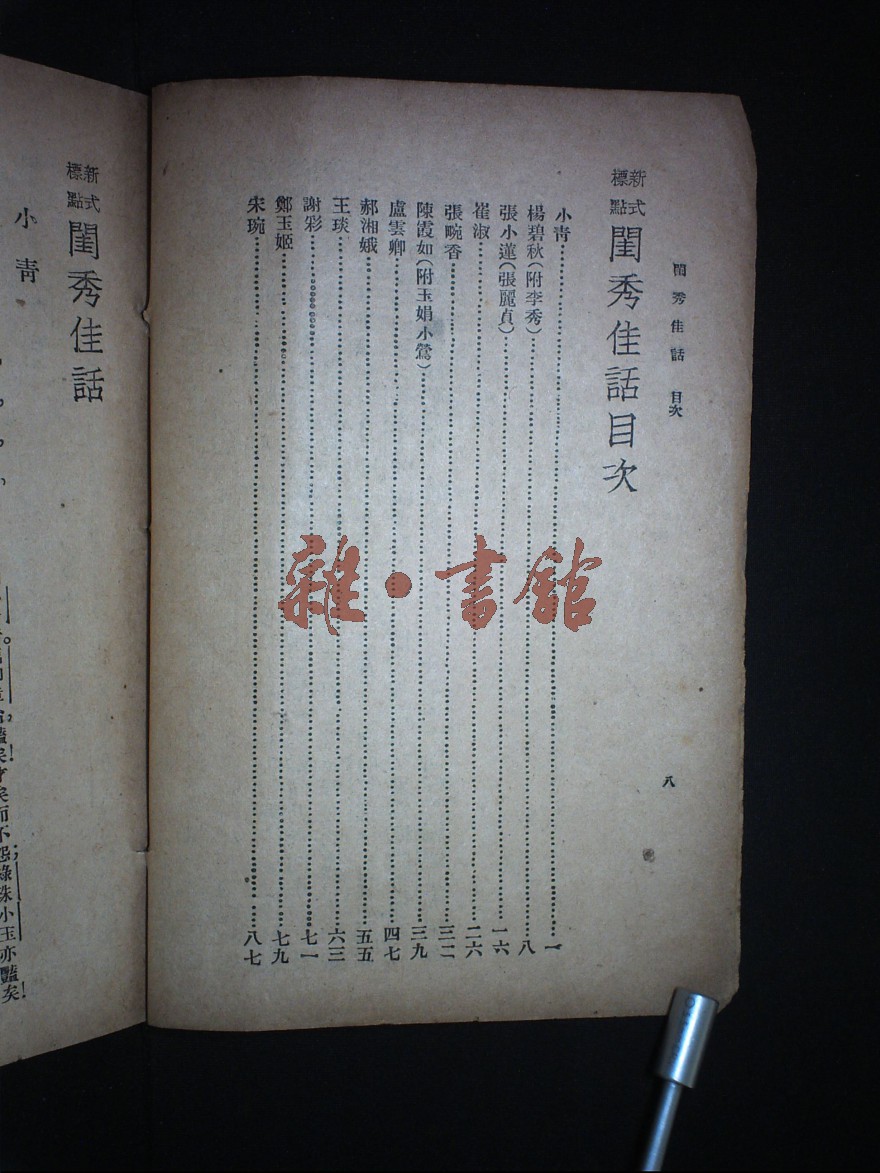 閨秀佳話 目次
八
新式標點 閨秀佳話目次
小青……一
楊碧秋(附李秀)……八
張小蓮(張麗貞)……一六
崔淑……二六
張畹香……三二
陳霞如(附玉娟小鶯)……三九
盧雲卿……四七
郝湘娥……五五
王琰……六三
謝彩……七一
鄭玉姬……七九
宋琬……八七
雜•書館
新式標點 閨秀佳話
小青
矣!才矣而不怨,綠珠小玉亦豔矣!